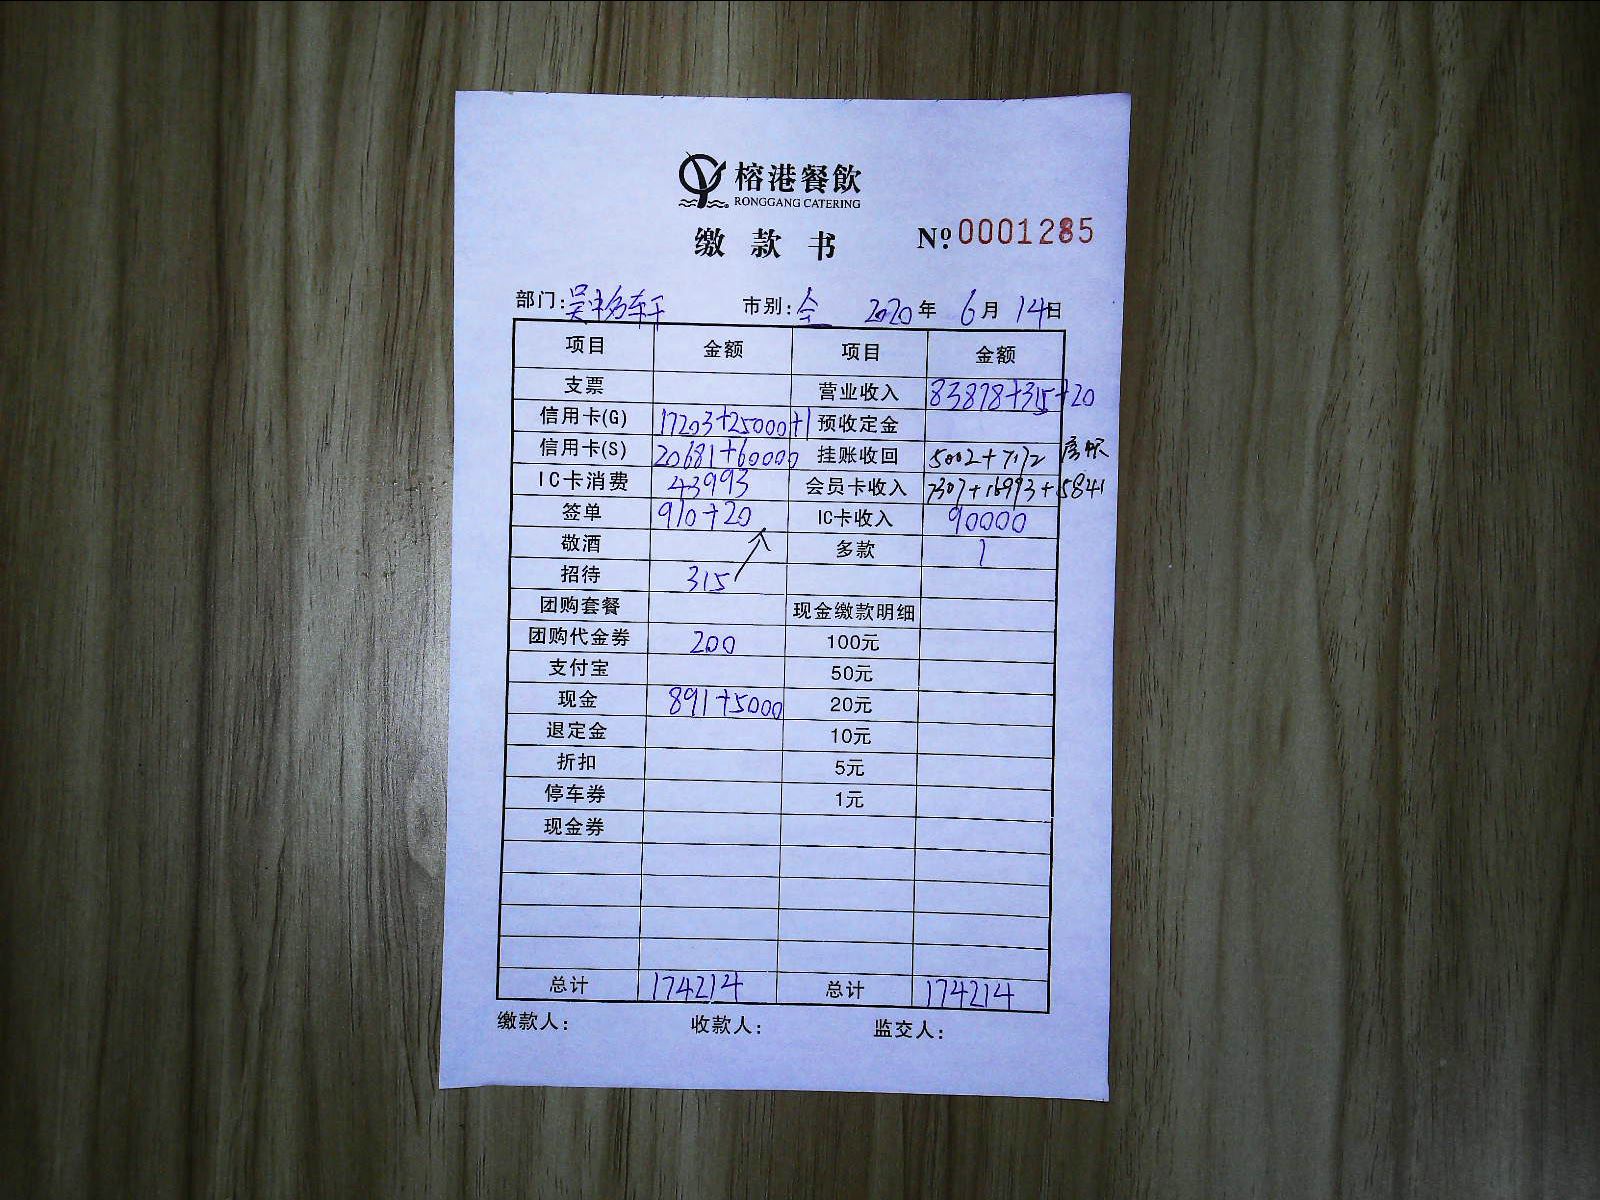 榕港餐飲
RONGGANG CATERING
缴款书 Nº 0001285
部门: 市别: 全 2020年 6月 14日
项目 金额 项目 金额
支票 营业收入 83878+315+20
信用卡(G) 17203+25000+1 预收定金
信用卡(S) 20681+60000 挂账收回 5002+7172
IC卡消费 43993 会员卡收入 7307+16993+5841
签单 910+20 IC卡收入 90000
敬酒 多款 1
招待 315
团购套餐 现金缴款明细
团购代金券 200 100元
支付宝 50元
现金 891+5000 20元
退定金 10元
折扣 5元
停车券 1元
现金券
总计 174214 总计 174214
缴款人: 收款人: 监交人: